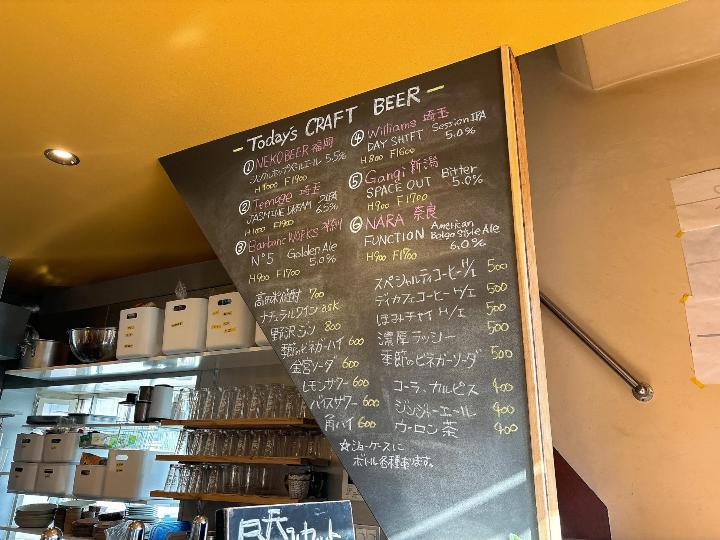 Today's CRAFT BEER
① NEKOBEER 福岡
シングルホップペールエール 5.5%
H1000 F1900
② Teenage 埼玉
JASMINE DREAM 2IPA
6.5%
H1000 F1900
③ Barbaric Works 神奈川
Nº5 Golden Ale
5.0%
H900 F1700
高田米焼酎 700
ナチュラルワイン ask
野沢ジン 800
季節のビネガーハイ 600
金宮ソーダ 600
レモンサワー 600
バイスサワー 600
角ハイ 600
☆ショーケースに
ボトル各種あります。
④ Williams 埼玉
DAY SHIFT Session IPA
5.0%
H800 F1500
⑤ Gangi 新潟
SPACE OUT Bitter
5.0%
H900 F1700
⑥ NARA 奈良
FUNCTION American
Belgo Style Ale
6.0%
H900 F1700
スペシャルティコーヒー H/I 500
ディカフェコーヒー H/I 500
ほうみチャイ H/I 500
濃厚ラッシー 500
季節のビネガーソーダ 500
コーラ、カルピス 400
ジンジャーエール 400
ウーロン茶 400